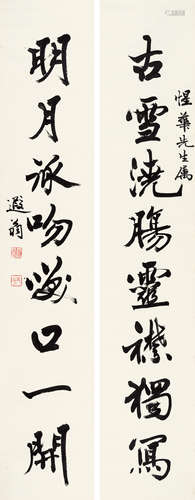 惺華先生屬
古雪澆腸靈襟獨寫
明月吻口一開
遐翁